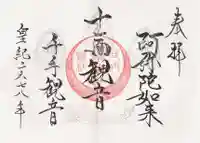 奉拝
阿弥陀如来
十一面観音
千手観音
皇紀二六七八年